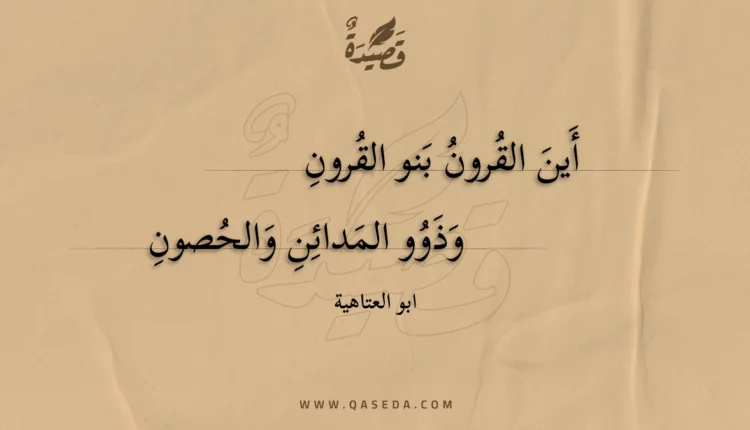 قَصِيدَةٌ
أَينَ القُرونُ بَنو القُرونِ
وَذَوُو المَدائِنِ وَالحُصونِ
ابو العتاهية
WWW.QASEDA.COM